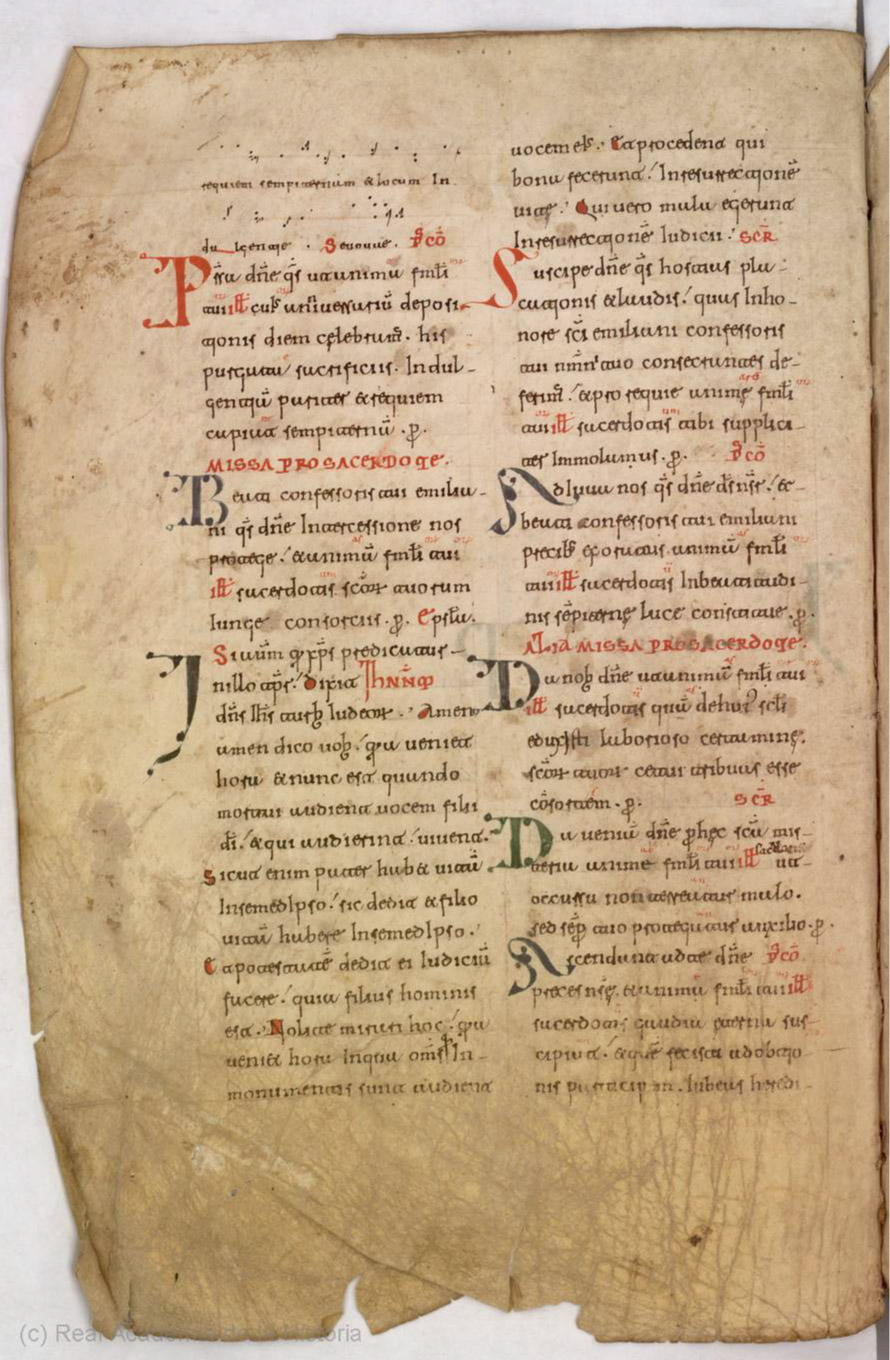 requiem sempiternum & locum In
dulgentie . Seuouae . P̃cō
P̃sta dn̄e q̄s ut animā fm̄li
tui ill̄ cuiꝰ anniuersariū deposi
tionis diem celebram̄. his
purgata sacrificiis. Indul-
gentiā pariter & requiem
capiat sempiternā . ꝑ.
MISSA PRO SACERDOTE.
Beati confessoris tui emilia-
ni q̄s dn̄e Intercessione nos
protege. & animā fm̄li tui
ill̄ sacerdotis sc̄oꝝ tuorum
Iunge consortiis. ꝑ. Epsl̄a.
Siuūm
nillo
dn̄s ih̄s turbis Iudeoꝝ. Amen
amen dico uob̄. q̄a uenit
hora & nunc est quando
mortui audient uocem filii
dī. & qui audierint uiuent.
Sicut enim pater habet uitā
Insemedipso. sic dedit & filio
uitā habere Insemedipso.
& potestatē dedit ei Iudiciū
facere. quia filius hominis
est. Nolite mirari hoc. q̄a
uenit hora Inqua om̄s In
monumentis sunt audient
uocem eiꝰ. & procedent qui
bona fecerunt. Inresurrectionē
uitę. Qui uero mala egerunt
Inresurrectionē Iudicii. SCR̄
Suscipe dn̄e q̄s hostias pla-
cationis & laudis. quas Inho-
nore sc̄i emiliani confessoris
tui nm̄ni tuo consecrantes de-
ferim̄. & pro requie animę fm̄li
tui ill̄ sacerdotis tibi supplica-
tes Immolamus. ꝑ. P̃cō
Adiuua nos q̄s dn̄e ds̄ nsr̄. &
beati confessoris tui emiliani
precibꝰ exoratus animā fm̄li
tui ill̄ sacerdotis Inbeatitudi-
nis sēpiternę luce constitue. ꝑ.
ALIA MISSA PRO SACERDOTE.
Da nob̄ dn̄e ut animā fm̄li tui
ill̄ sacerdotis quā dehuiꝰ scl̄i
eduxisti laborioso certamine.
sc̄oꝝ tuoꝝ cetui tribuas esse
cōsortem. ꝑ. SCR̄
Da ueniā dn̄e ꝑ hęc sc̄a mis-
teria anime fm̄li tui ill̄ sacerdotis ut
occursu non terreatur malo.
sed sēp tuo protegatur auxilio. ꝑ.
Ascendant ad te dn̄e P̃cō
preces nr̄ę. & animā fm̄li tui ill̄
sacerdotis gaudia eterna sus-
cipiat. & quē fecisti adobtio
nis participem. Iubeas heredi-